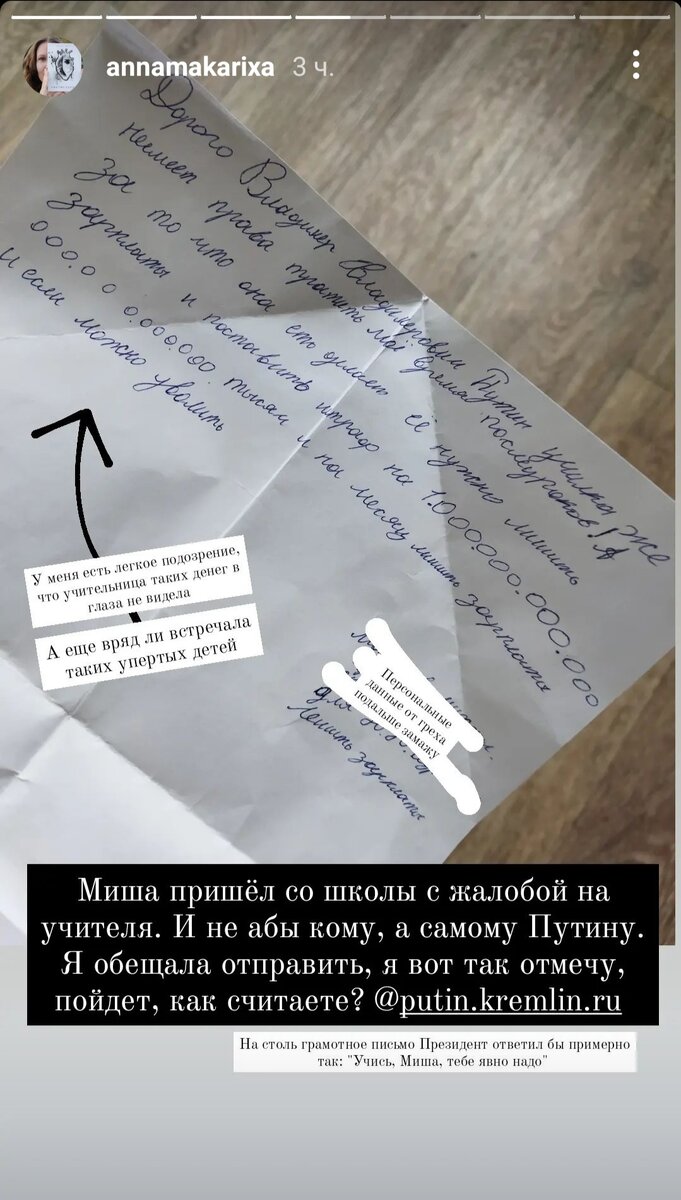 annamakarixa 3 ч.
Дорого Владимер Владимерович Путин училка же
неимеет права тратить моё время послеуроков! А
за то что она ето делает её нужно лишить
зарплаты и поставить штраф на 1.000.000.000.000
000.000.000.000 тысяч и на месяц лишить зарплаты
И если можно уволить
У меня есть легкое подозрение,
что учительница таких денег в
глаза не видела
А еще вряд ли встречала
таких упертых детей
Персональные
данные от греха
подальше замажу
Лешить зарплаты
Миша пришёл со школы с жалобой на
учителя. И не абы кому, а самому Путину.
Я обещала отправить, я вот так отмечу,
пойдет, как считаете? @putin.kremlin.ru
На столь грамотное письмо Президент ответил бы примерно
так: "Учись, Миша, тебе явно надо"